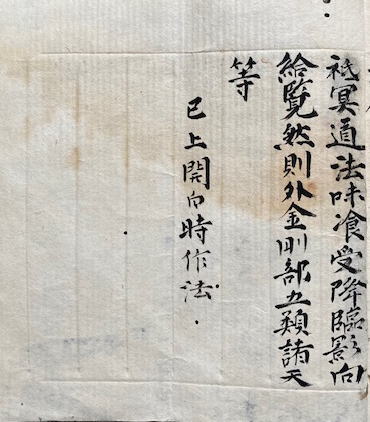 祇冥道法味飡受降臨影向
給覧然則外金剛部五類諸天
等
已上開白時作法